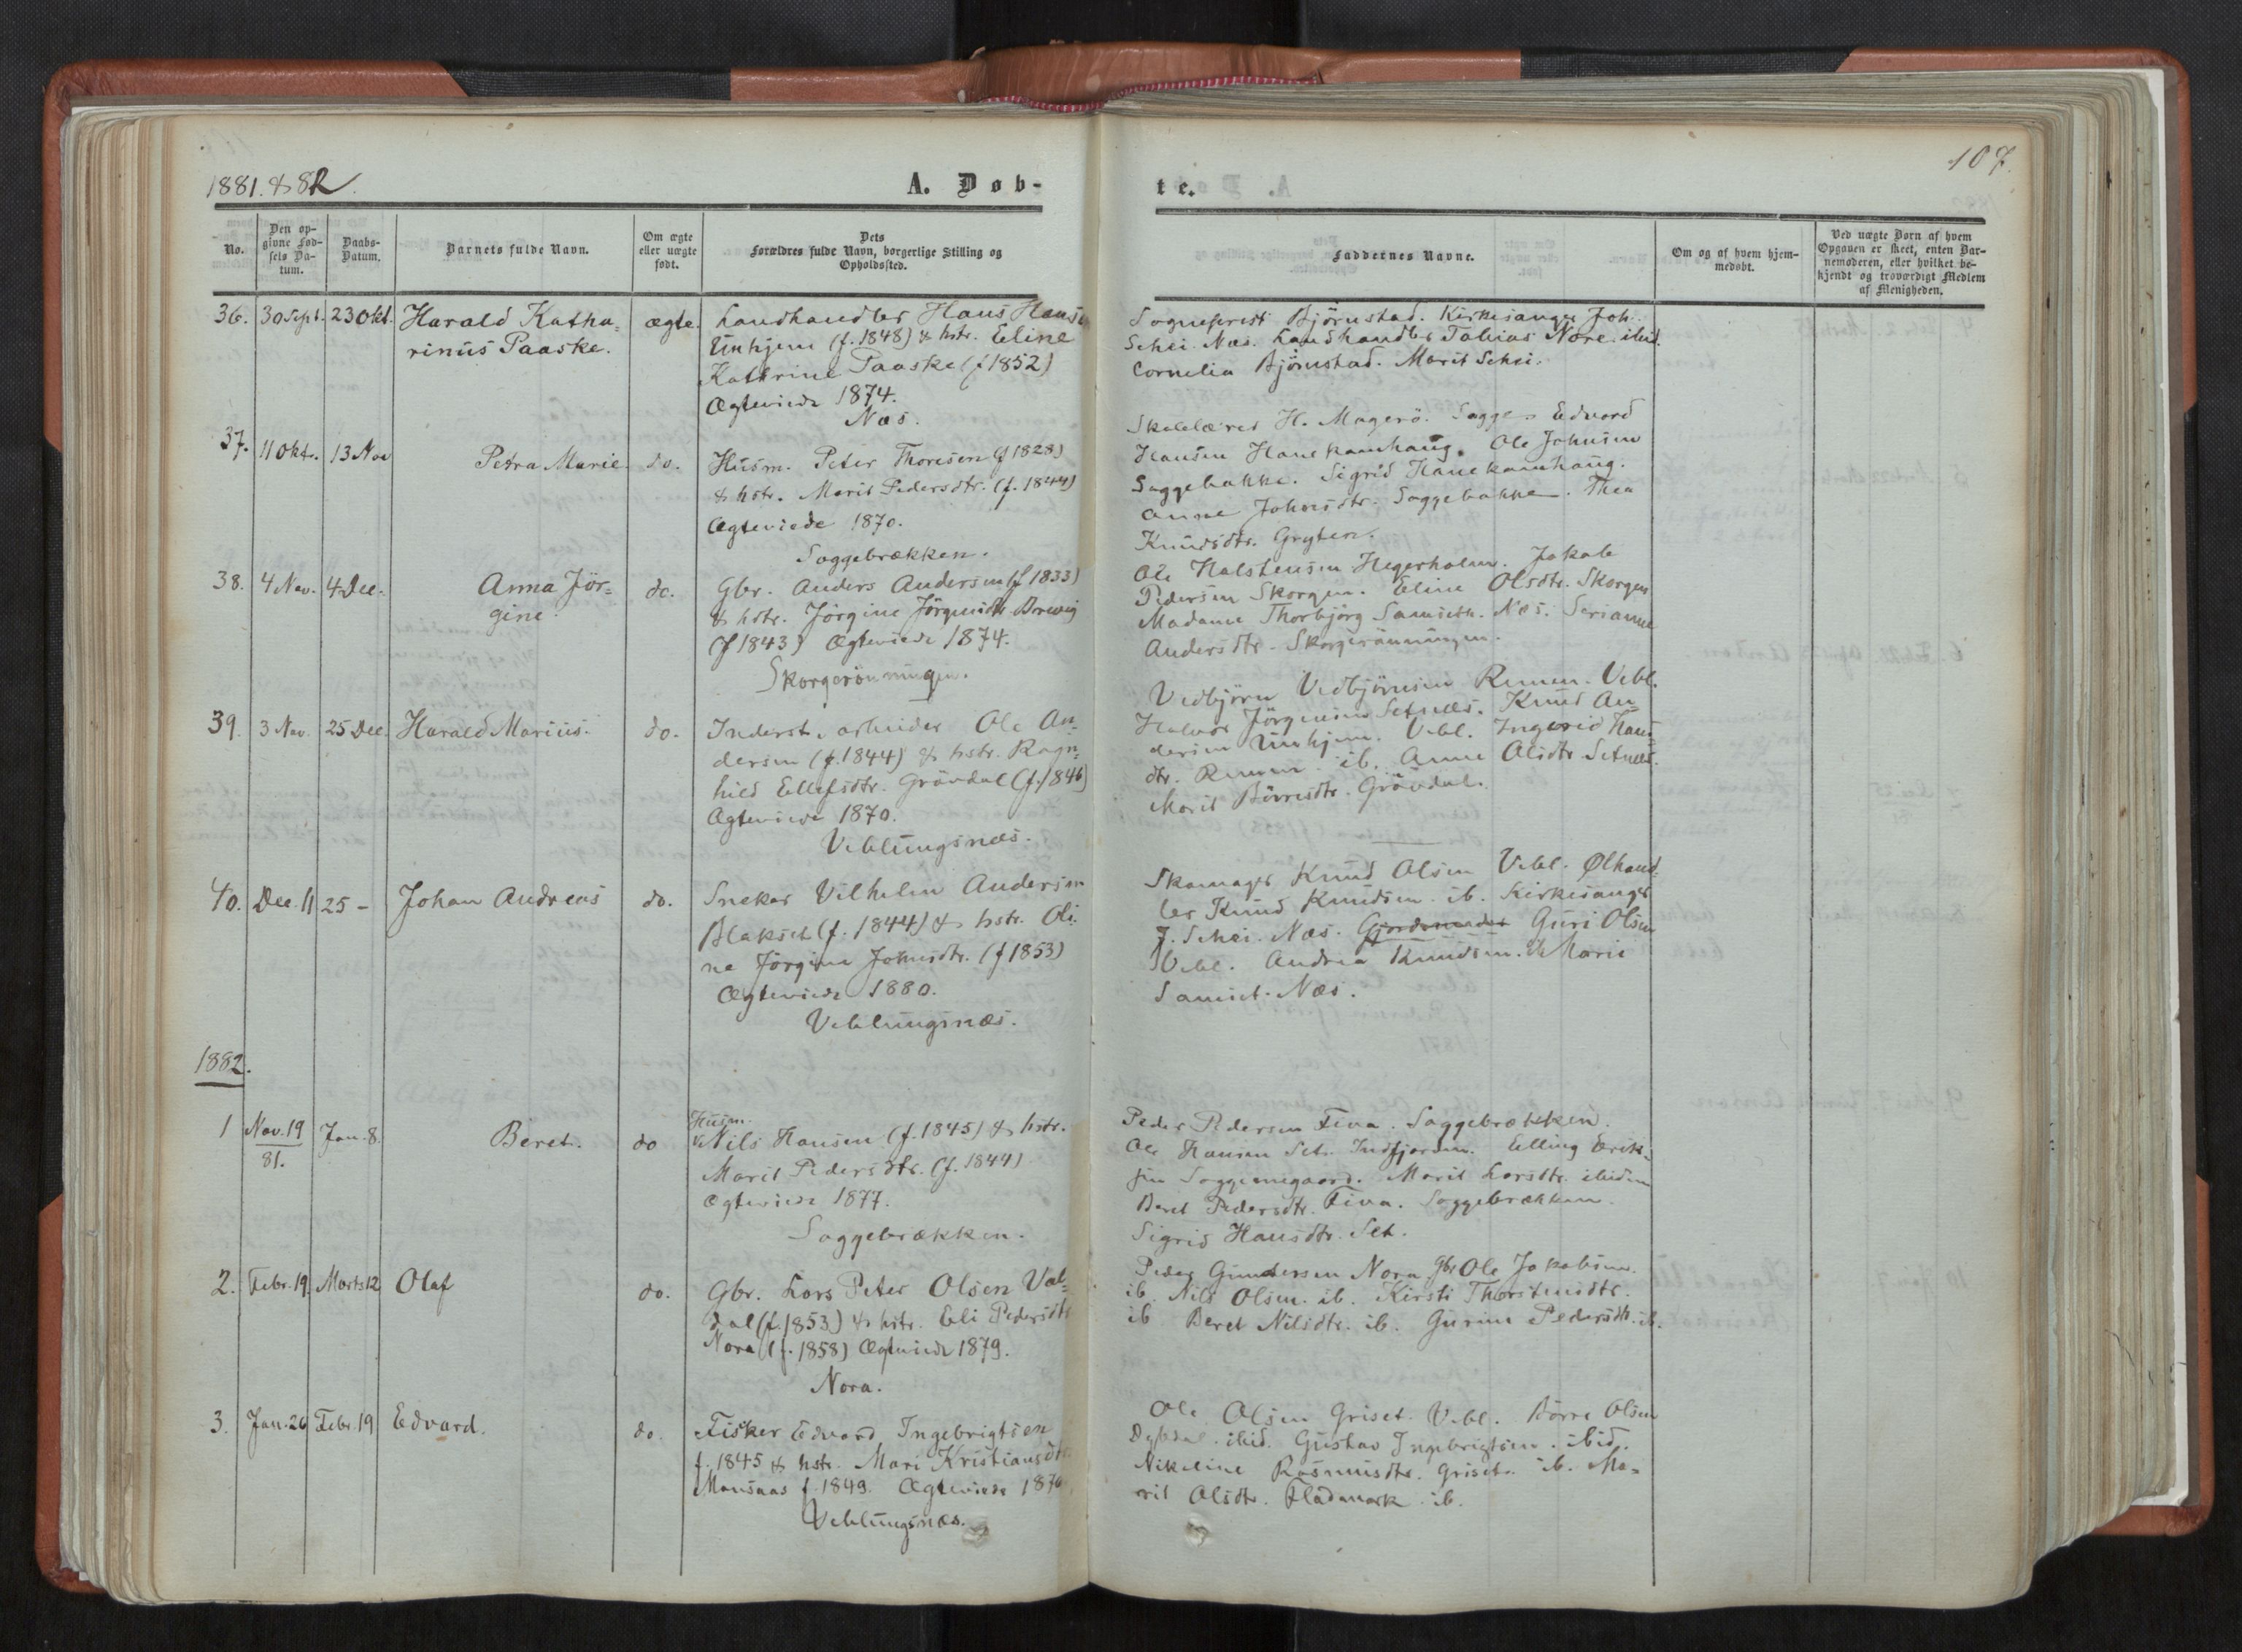 1881. & 82.
A. Døb-
No.
Den opgivne Fødsels Datum.
Daabs-Datum.
Barnets fulde Navn.
Om ægte eller uægte født.
Dets Forældres fulde Navn, borgerlige Stilling og Opholdssted.
36. 30 Sept. 23 Okt. Harald Katha= ægte. Landhandler Hans Hansen
rinus Paaske. Unhjem (f. 1848) & hstr. Eline
Kathrine Paaske (f 1852)
Ægteviede 1874.
Næs.
37. 11 Okt. 13 Nov Petra Marie. do. Husm. Peter Thoresen (f 1828)
& hstr. Marit Pedersdtr. (f. 1844)
Ægteviede 1870.
Soggebrækken.
38. 4 Nov. 4 Dec. Anna Jör= do. Gbr. Anders Andersen (f 1833)
gine. & hstr. Jörgine Jörgensdtr. Brevig
(f 1843) Ægteviede 1874.
Skorgerönningen.
39. 3 Nov. 25 Dec. Harald Marius. do. Inderst, arbeider Ole An=
dersen (f. 1844) & hstr. Ragn=
hild Ellefsdtr. Grövdal (f. 1846)
Ægteviede 1870.
Veblungsnæs.
40. Dec. 11 25 - Johan Andreas do. Snekker Vilhelm Andersen
Blakset (f. 1844) & hstr. Oli=
ne Jörgine Johnsdtr. (f 1853)
Ægteviede 1880.
Veblungsnæs.
1882.
1 Nov. 19 81. Jan. 8. Beret. do Husm. Nils Hansen (f. 1845) & hstr.
Marit Pedersdtr. (f. 1844)
Ægteviede 1877.
Soggebrækken.
2. Febr. 19. Marts 12 Olaf do. Gbr. Lars Peter Olsen Val=
dal (f. 1853) & hstr. Eli Pedersdtr
Nora (f. 1858) Ægteviede 1879.
Nora.
3. Jan. 26 Febr. 19 Edvard. do. Fisker Edvard Ingebrigtsen
f. 1845 & hstr. Mari Kristiansdtr.
Monsaas f. 1849. Ægteviede 1870.
Veblungsnæs.
107.
te.
Faddernes Navne.
Om og af hvem hjemmedøbt.
Ved uægte Børn af hvem Opgaven er skeet, enten Barnemoderen, eller hvilket bekjendt og troværdigt Medlem af Menigheden.
Sogneprest Björnstad. Kirkesanger Joh.
Schei. Næs. Landhandler Tobias Nore. ibid.
Cornelia Björnstad. Marit Schei.
Skolelærer H. Magerö. Sogge. Edvard
Hansen Hanekamhaug. Ole Johnsen
Soggebakke. Sigrid Hanekamhaug.
Anne Johnsdtr. Soggebakke. Thea
Knudsdtr. Gryten.
Ole Halstensen Hegerholm. Jakob
Pedersen Skorgen. Eline Olsdtr. Skorgen
Madame Thorbjörg Samseth. Næs. Serianne
Andersdtr. Skorgerönningen.
Vedbjörn Vedbjörnsen Remen. Vebl.
Halvor Jörgensen Setnes. Knud An=
dersen Unhjem. Vebl. Ingerid Hans=
dtr. Remen. ib. Anne Olsdtr. Setnes.
Marit Börresdtr. Grövdal.
Skomager Knud Olsen Vebl. Ølhand=
ler Knud Knudsen. ib. Kirkesanger
J. Schei. Næs. Guri Olsen
Vebl. Andrea Knudsen. ib Marie
Samset. Næs.
Peder Pedersen Fiva. Soggebrækken.
Ole Hansen Set. Indfjorden. Elling Erik=
sen Soggemegaard. Marit Larsdtr. ibidem
Beret Pedersdtr. Fiva. Soggebrækken
Sigrid Hansdtr. Set.
Peder Gundersen Nora Gbr Ole Jakobsen.
ib. Nils Olsen. ib. Kirsti Thorstensdtr.
ib Beret Nilsdtr. ib. Gurine Pedersdtr. ib.
Ole Olsen Griset. Vebl. Börre Olsen
Dybdal. ibid. Gustav Ingebrigtsen. ibid.
Nikoline Rasmusdtr. Griset. ib. Ma=
rit Olsdtr. Fladmark. ib.